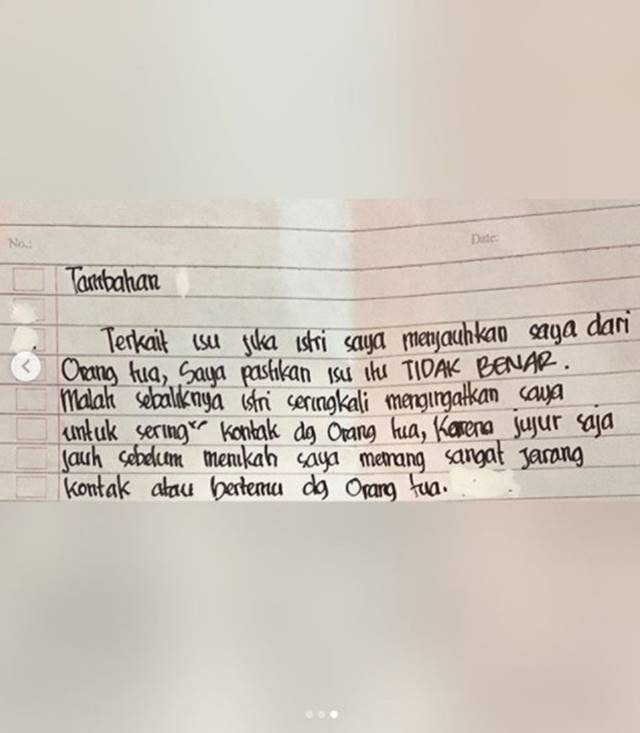 No.:
Date:
Tambahan
Terkait isu jika istri saya menjauhkan saya dari
Orang tua, Saya pastikan isu itu TIDAK BENAR.
Malah sebaliknya istri seringkali mengingatkan saya
untuk sering" kontak dg Orang tua, Karena jujur saja
jauh sebelum menikah saya memang sangat Jarang
kontak atau bertemu dg Orang tua.